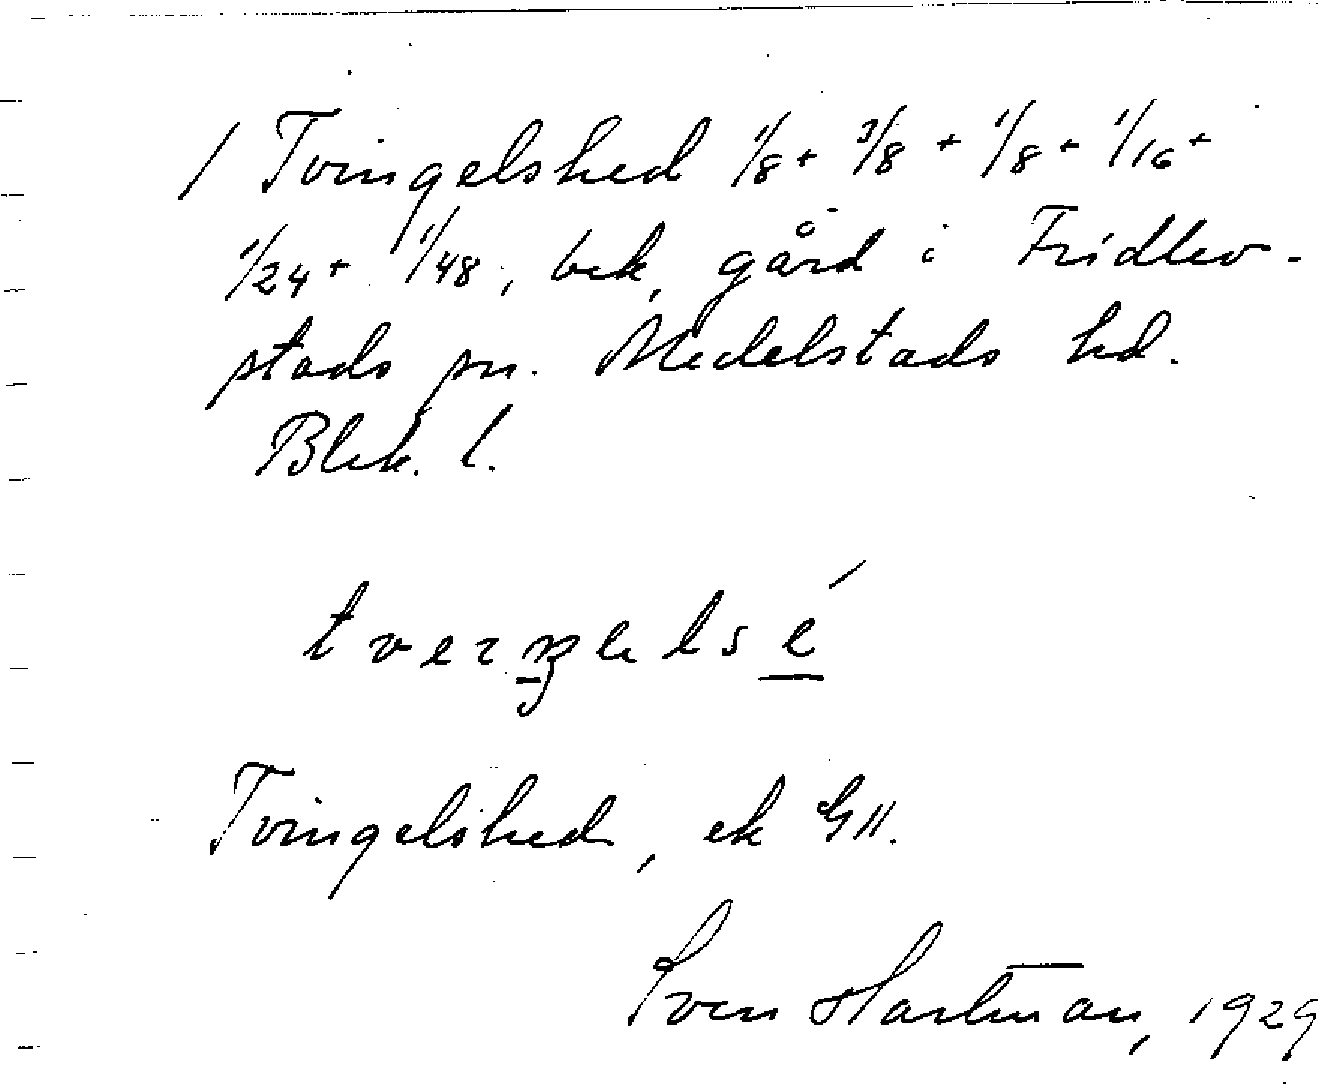 / Tvingelshed 1/8 + 3/8 + 1/8 + 1/16 +
1/24 + 1/48, bek, gård i Fridlev-
stads sn. Medelstads hd.
Blek. l.
Tvingelshed, ek GII.
Sven Hartman, 1929